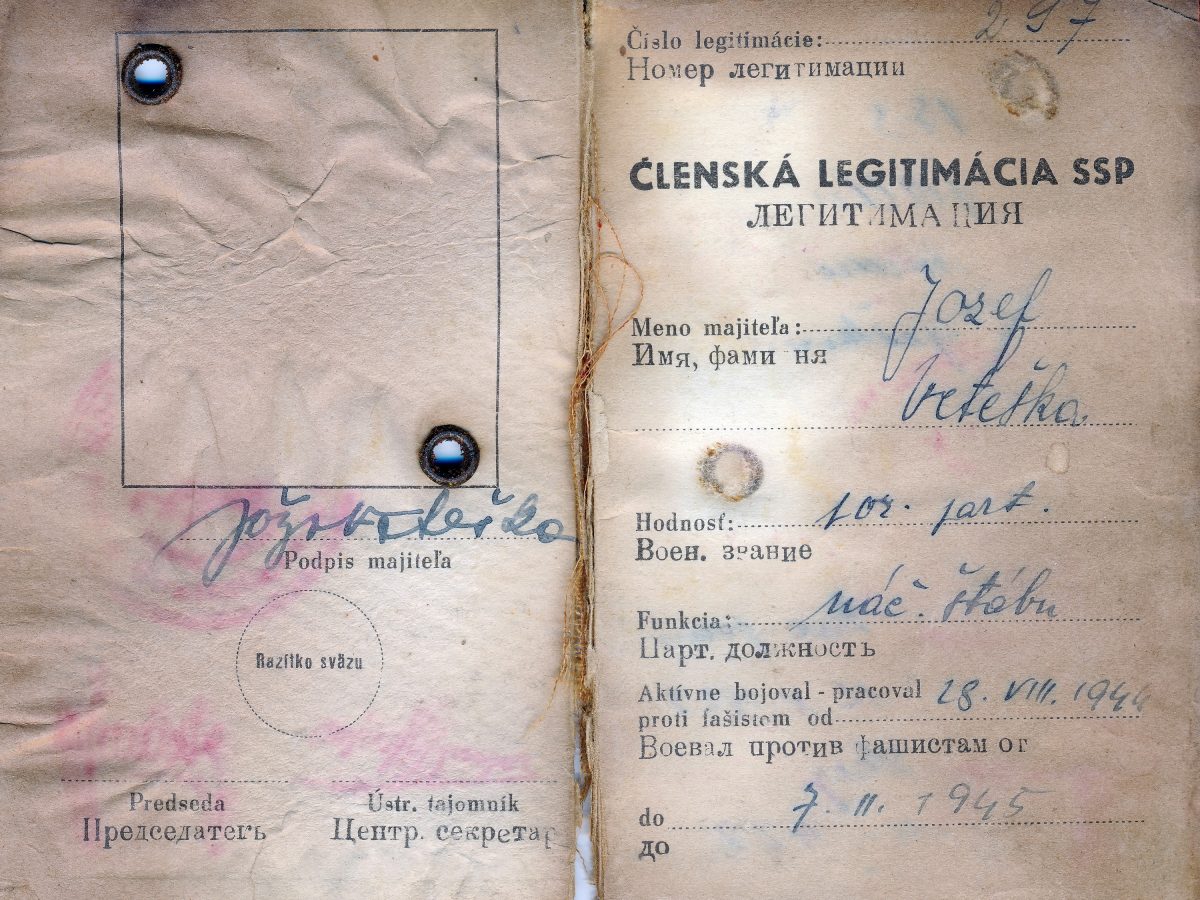 Jožo Veteška
Podpis majiteľa
Razítko sväzu
Predseda
Председатель
Ústr. tajomník
Центр. секретар
Číslo legitimácie: 297
Номер легитимации
ČLENSKÁ LEGITIMÁCIA SSP
ЛЕГИТИМАЦИЯ
Meno majiteľa: Jozef
Имя, фами ия
Veteška
Hodnosť: por. part.
Воен. звание
Funkcia: náč. štábu
Парт. должность
Aktívne bojoval - pracoval 28. VIII. 1944
proti fašistom od
Воевал против фашистам от
do 7. II. 1945
до